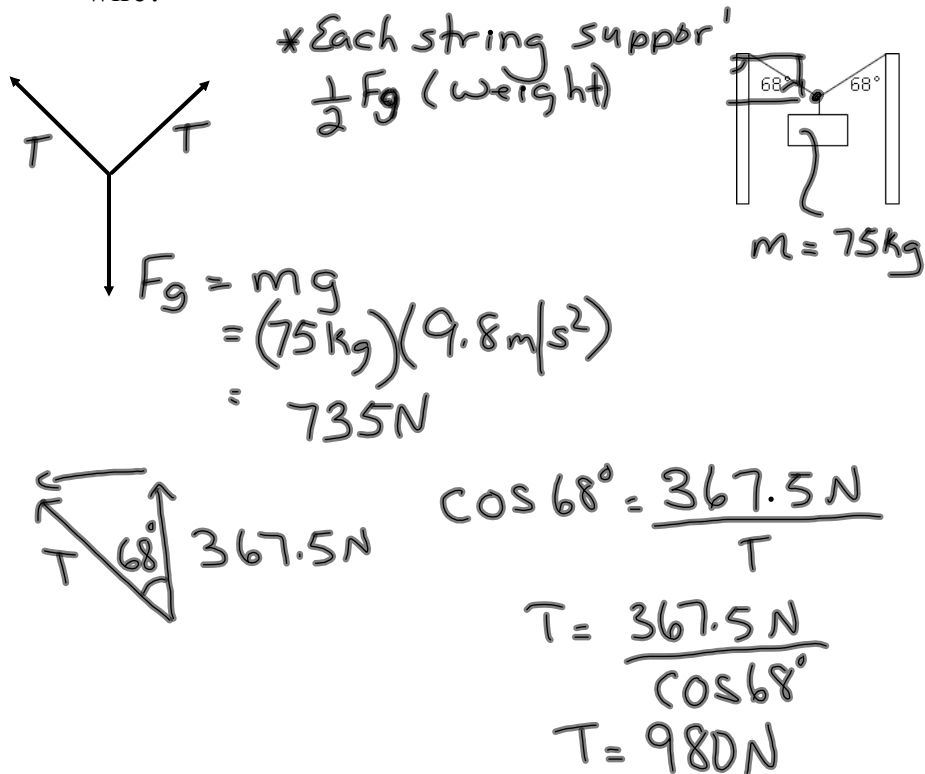 *Each string suppor
1/2 Fg (weight)
T T
68° 68°
m = 75kg
Fg = mg
= (75kg)(9.8m/s²)
= 735N
T 68° 367.5N
cos68° = 367.5N / T
T = 367.5N / cos68°
T = 980N